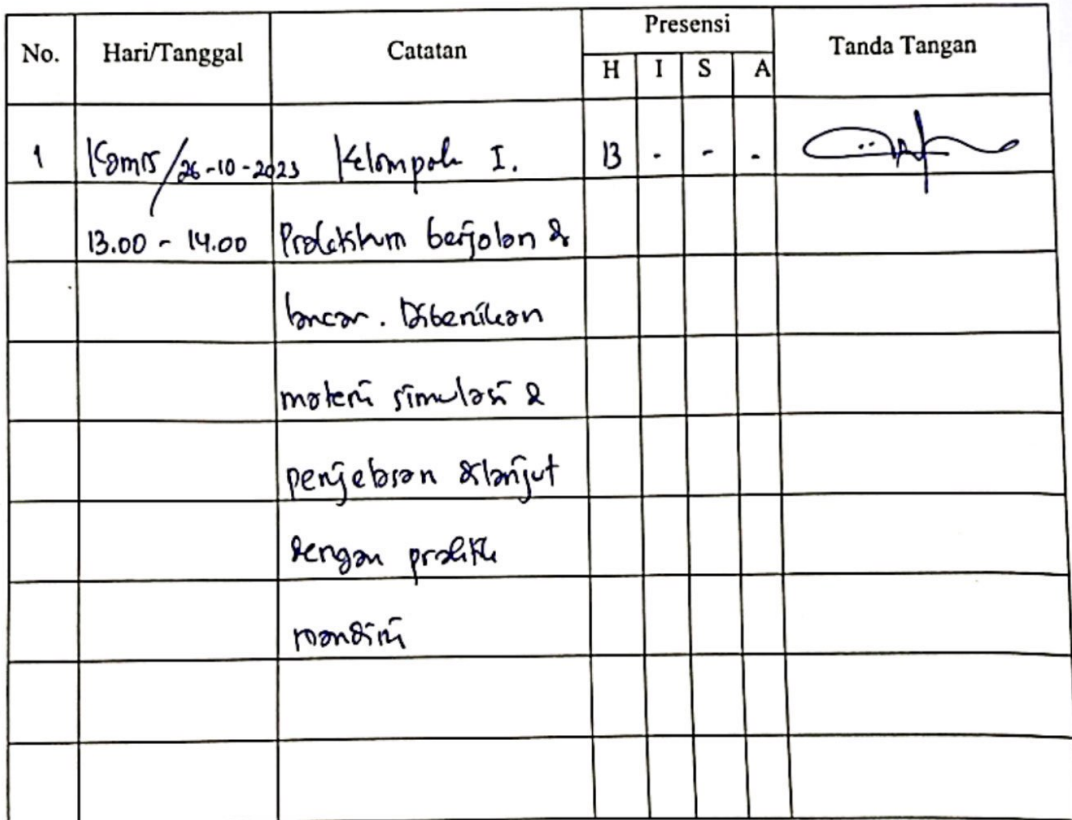 No. Hari/Tanggal Catatan Presensi Tanda Tangan
H I S A
1 Kamis/26-10-2023 Kelompok I. 13 - - -
13.00 - 14.00 Praktikum berjalan &
lancar. Diberikan
materi simulasi &
penjelasan dilanjut
dengan praktik
mandiri